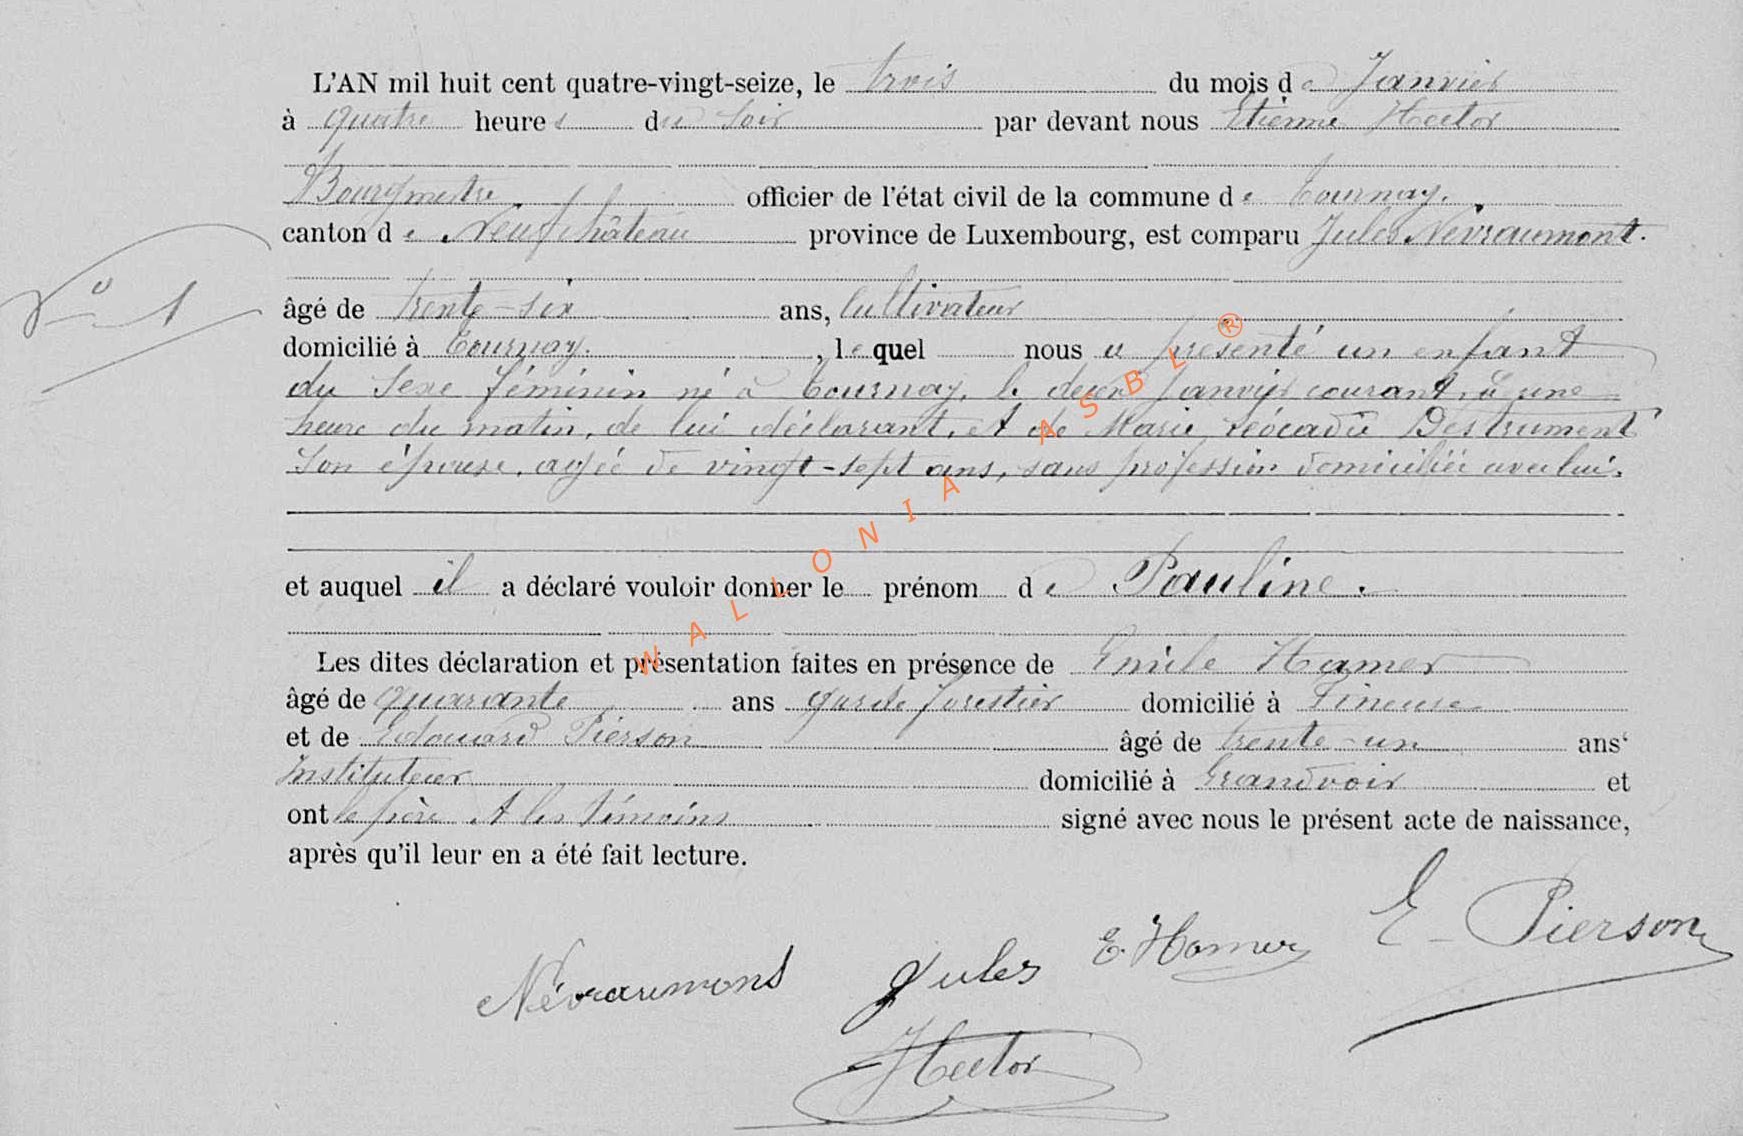 L'AN mil huit cent quatre-vingt-seize, le trois du mois de Janvier
à quatre heures du soir par devant nous Etienne Hector
Bourgmestre officier de l'état civil de la commune de Tournay.
canton de Neufchâteau province de Luxembourg, est comparu Jules Névraumont.
N° 1
âgé de trente-six ans, Cultivateur
domicilié à Tournay. , lequel nous a présenté un enfant
du sexe féminin né à Tournay, le deux Janvier courant, à une
heure du matin, de lui déclarant, et de Marie Léocadie Destrument
son épouse, agée de vingt-sept ans, sans profession domiciliée avec lui.
et auquel il a déclaré vouloir donner le prénom de Pauline.
Les dites déclaration et présentation faites en présence de Emile Hamer
âgé de quarante ans garde forestier domicilié à
et de Edouard Pierson âgé de trente-un ans
Instituteur domicilié à Grandvoir et
ont le père et les témoins signé avec nous le présent acte de naissance,
après qu'il leur en a été fait lecture.
E. Pierson
Névraumont Jules E. Hamer
Hector
WALLONIA ASBL ®